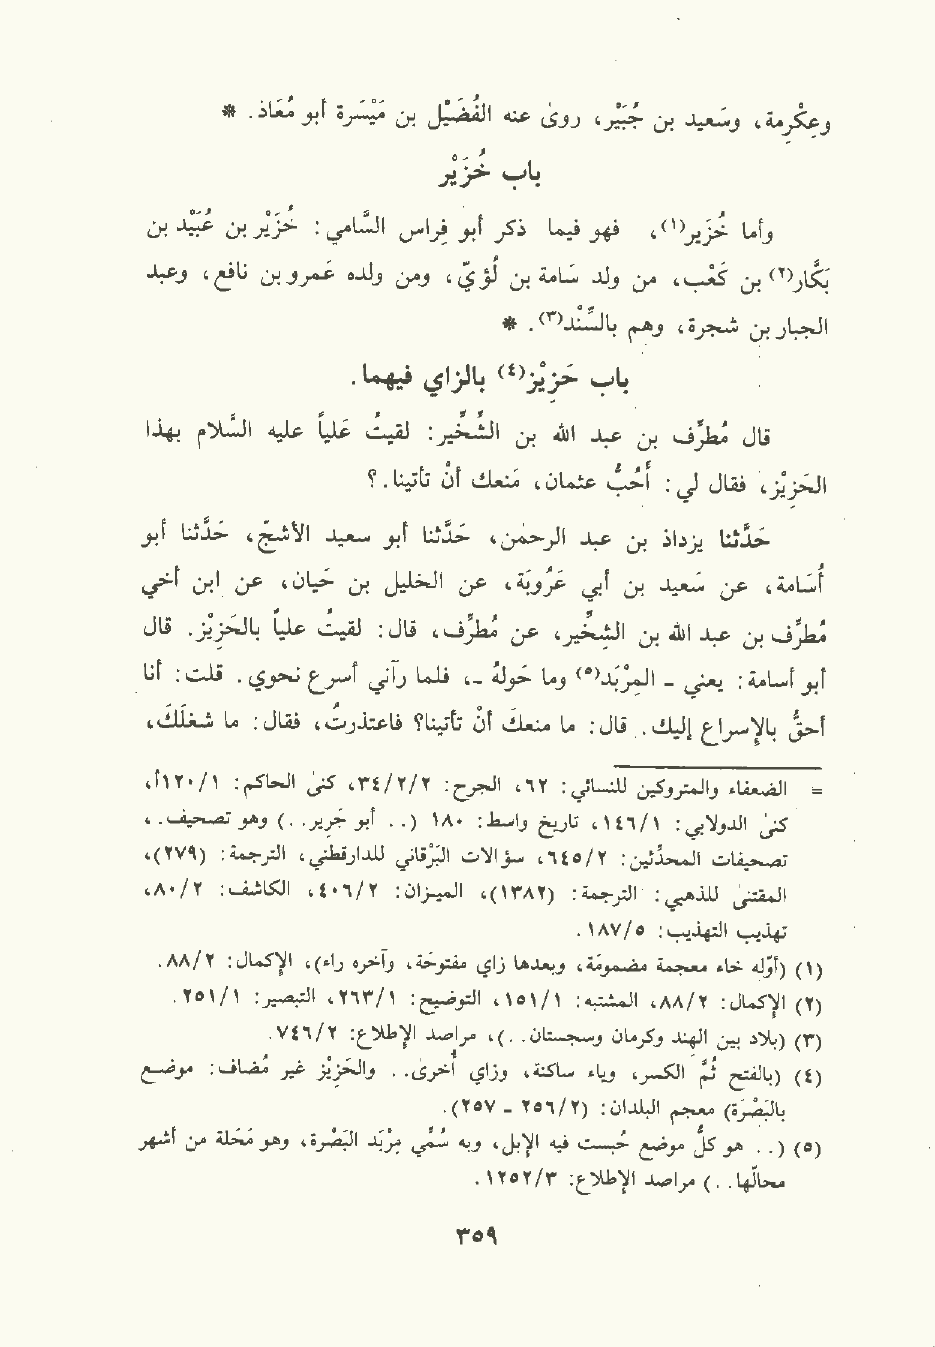 وعِكْرِمة، وسَعيد بن جُبَيْر، روىٰ عنه الفُضَيْل بن مَيْسَرة أبو مُعَاذ. *
باب خُزَيْر
وأما خُزَير(١)، فهو فيما ذكر أبو فِراس السَّامي: خُزَيْر بن عُبَيْد بن
بَكَّار(٢) بن كَعْب، من ولد سَامة بن لُؤيّ، ومن ولده عَمرو بن نافع، وعبد
الجبار بن شجرة، وهم بالسِّنْد(٣). *
باب حَزِيْز(٤) بالزاي فيهما.
قال مُطرِّف بن عبد الله بن الشِّخِّير: لقيتُ عَلياً عليه السَّلام بهذا
الحَزِيْز، فقال لي: أَحُبُّ عثمان، مَنعك أنْ تأتينا.؟
حَدَّثنا يزداذ بن عبد الرحمٰن، حَدَّثنا أبو سعيد الأشجّ، حَدَّثنا أبو
أُسَامة، عن سَعيد بن أبي عَرُوبَة، عن الخليل بن حَيان، عن ابن أخي
مُطرِّف بن عبد الله بن الشِّخِّير، عن مُطرِّف، قال: لقيتُ علياً بالحَزِيْز. قال
أبو أسامة: يعني - المِرْبَد(٥) وما حَولهُ -، فلما رآني أسرع نحوي. قلت: أنا
أحقُّ بالإسراع إليك. قال: ما منعك أنْ تأتينا؟ فاعتذرتُ، فقال: ما شغلَكَ،
= الضعفاء والمتروكين للنسائي: ٦٢، الجرح: ٣٤/٢/٢، كنىٰ الحاكم: ١٢٠/١أ،
كنىٰ الدولابي: ١٤٦/١، تاريخ واسط: ١٨٠ (.. أبو جَرير..) وهو تصحيف.،
تصحيفات المحدِّثين: ٦٤٥/٢، سؤالات البَرْقاني للدارقطني، الترجمة: (٢٧٩)،
المقتنىٰ للذهبي: الترجمة: (١٣٨٢)، الميزان: ٤٠٦/٢، الكاشف: ٨٠/٢،
تهذيب التهذيب: ١٨٧/٥.
(١) (أوّله خاء معجمة مضمومة، وبعدها زاي مفتوحة، وآخره راء)، الإكمال: ٨٨/٢.
(٢) الإكمال: ٨٨/٢، المشتبه: ١٥١/١، التوضيح: ٢٦٣/١، التبصير: ٢٥١/١.
(٣) (بلاد بين الهند وكرمان وسجستان..)، مراصد الإطلاع: ٧٤٦/٢.
(٤) (بالفتح ثُمَّ الكسر، وياء ساكنة، وزاي أُخرىٰ.. والحَزِيْز غير مُضاف: موضع
بالبَصْرَة) معجم البلدان: (٢٥٦/٢ - ٢٥٧).
(٥) (.. هو كلُّ موضع حُبست فيه الإبل، وبه سُمِّي مِرْبَد البَصْرَة، وهو مَحَلة من أشهر
محالِّها..) مراصد الإطلاع: ١٢٥٢/٣.
٣٥٩